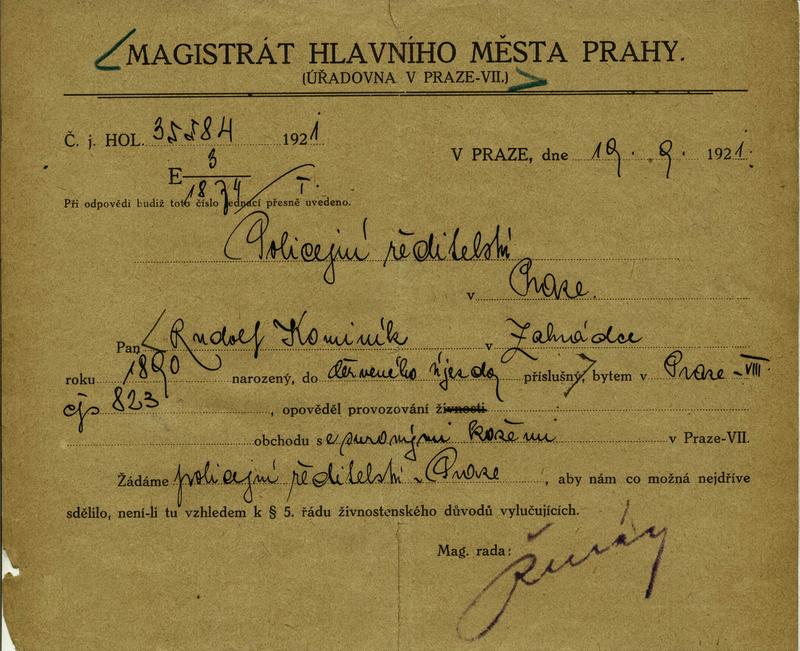 MAGISTRÁT HLAVNÍHO MĚSTA PRAHY.
(ÚŘADOVNA V PRAZE-VII.)
Č. j. HOL. 35584 1921
V PRAZE, dne 19. 9. 1921.
E 3
1874 I.
Při odpovědi budiž toto číslo jednací přesně uvedeno.
Policejní ředitelství
v Praze.
Pan Rudolf Kominík v Zahrádce
roku 1890 narozený, do příslušný, bytem v Praze-VIII
čp 823, opověděl provozování živnosti
obchodu s surovými kožemi v Praze-VII.
Žádáme policejní ředitelství v Praze, aby nám co možná nejdříve
sdělilo, není-li tu vzhledem k § 5. řádu živnostenského důvodů vylučujících.
Mag. rada: